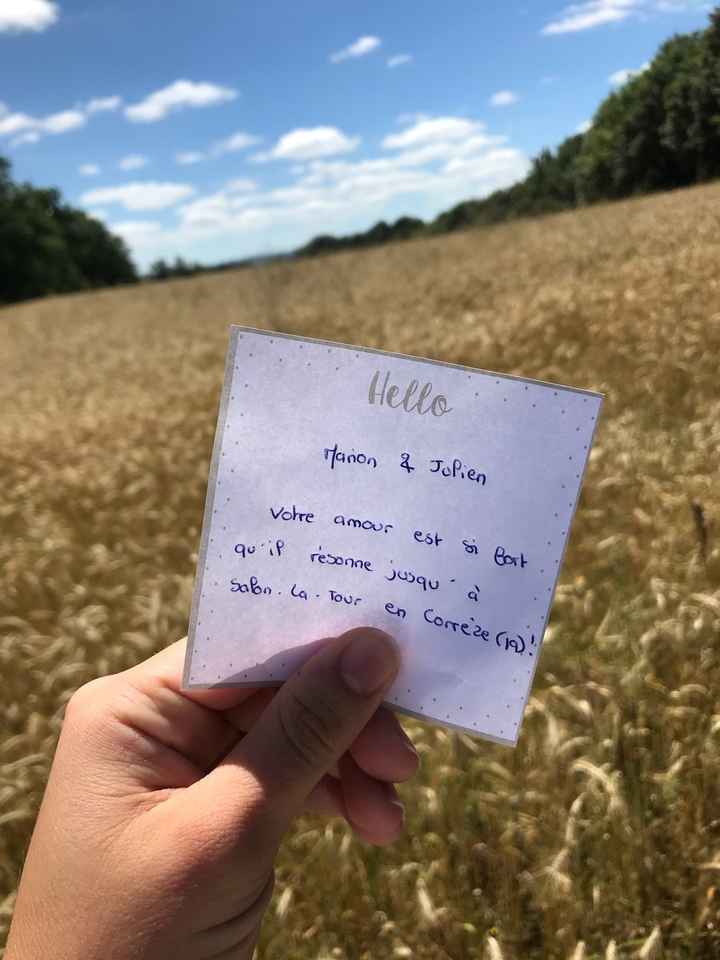 Hello
Marion & Julien
Votre amour est si fort
qu'il résonne jusqu'à
Salon-La-Tour en Corrèze (19)!